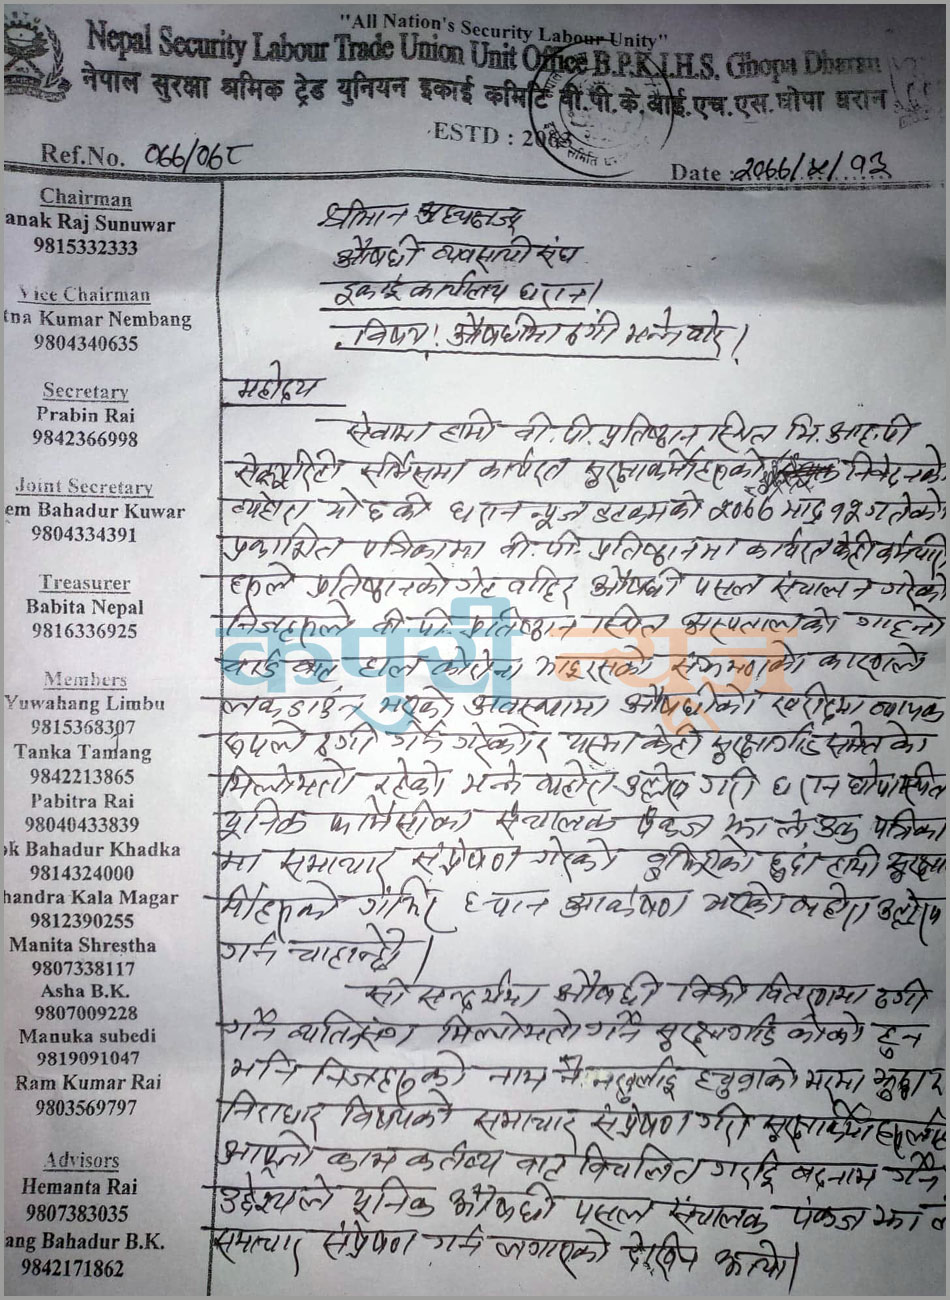 "All Nation's Security Labour Unity"
Nepal Security Labour Trade Union Unit Office B.P.K.I.H.S. Ghopa Dharan
नेपाल सुरक्षा श्रमिक ट्रेड युनियन इकाई कमिटि बी.पी.के.आई.एच.एस.घोपा धरान
ESTD : 2063
Ref.No. ०७७/०७८
Date : २०७७/५/१३
Chairman
anak Raj Sunuwar
9815332333
Vice Chairman
tna Kumar Nembang
9804340635
Secretary
Prabin Rai
9842366998
Joint Secretary
em Bahadur Kuwar
9804334391
Treasurer
Babita Nepal
9816336925
Members
Yuwahang Limbu
9815368307
Tanka Tamang
9842213865
Pabitra Rai
98040433839
ok Bahadur Khadka
9814324000
handra Kala Magar
9812390255
Manita Shrestha
9807338117
Asha B.K.
9807009228
Manuka subedi
9819091047
Ram Kumar Rai
9803569797
Advisors
Hemanta Rai
9807383035
ang Bahadur B.K.
9842171862
श्रीमान अध्यक्षज्यू
औषधी व्यवसायी संघ
इकाई कार्यालय धरान।
विषय! औषधीमा ठगी भन्ने बारे।
महोदय
सेवामा हामी बी.पी. प्रतिष्ठान स्थित भि.आइ.पी
सेक्युरिटी सर्भिसमा कार्यरत सुरक्षाकर्मीहरुको निवेदनको
व्यहोरा यो छ की धरान न्यूज डटकमको २०७७ भाद्र १२ गतेको
प्रकाशित पत्रिकामा बी.पी. प्रतिष्ठानमा कार्यरत केही कर्मचारी
हरुले प्रतिष्ठानको गेट बाहिर औषधी पसल संचालन गरेको
निजहरुले बी.पी. प्रतिष्ठान स्थित अस्पतालको गाइनो
वार्ड बाट हाल कोरोना भाइरसको संक्रमणको कारणले
लकडाउन भएको अवस्थामा औषधीको खरीदमा व्यापक
रुपले ठगी गर्ने गरेको र यसमा केही सुरक्षागार्ड समेतको
मिलोमतो रहेको भन्ने व्यहोरा उल्लेख गरी धरान घोपास्थित
युनिक फार्मेसीका संचालक पंकज झा ले उक्त पत्रिका
मा समाचार संप्रेषण गरेको बुझिएको हुदा हामी सुरक्षाक
र्मीहरुको गंभिर ध्यान आकर्षण भएको व्यहोरा उल्लेख
गर्न चाहान्छौ।
सो सन्दर्भमा औषधी बिक्री वितरणमा ठगी
गर्ने व्यक्तिसंग मिलोमतो गर्ने सुरक्षागार्ड को को हुन
भनि निजहरुको नाम नै नखुलाई हचुवाको भरमा झुठ्ठा र
निराधार विषयको समाचार संप्रेषण गरी सुरक्षाकर्मीहरुलाई
आफ्नो काम कर्तव्य बाट विचलित गराई बदनाम गर्ने
उद्देश्यले युनिक औषधी पसल संचालक पंकज झा ले
समाचार संप्रेषण गर्न लगाएको देखिन आयो।
कपुरी न्यूज